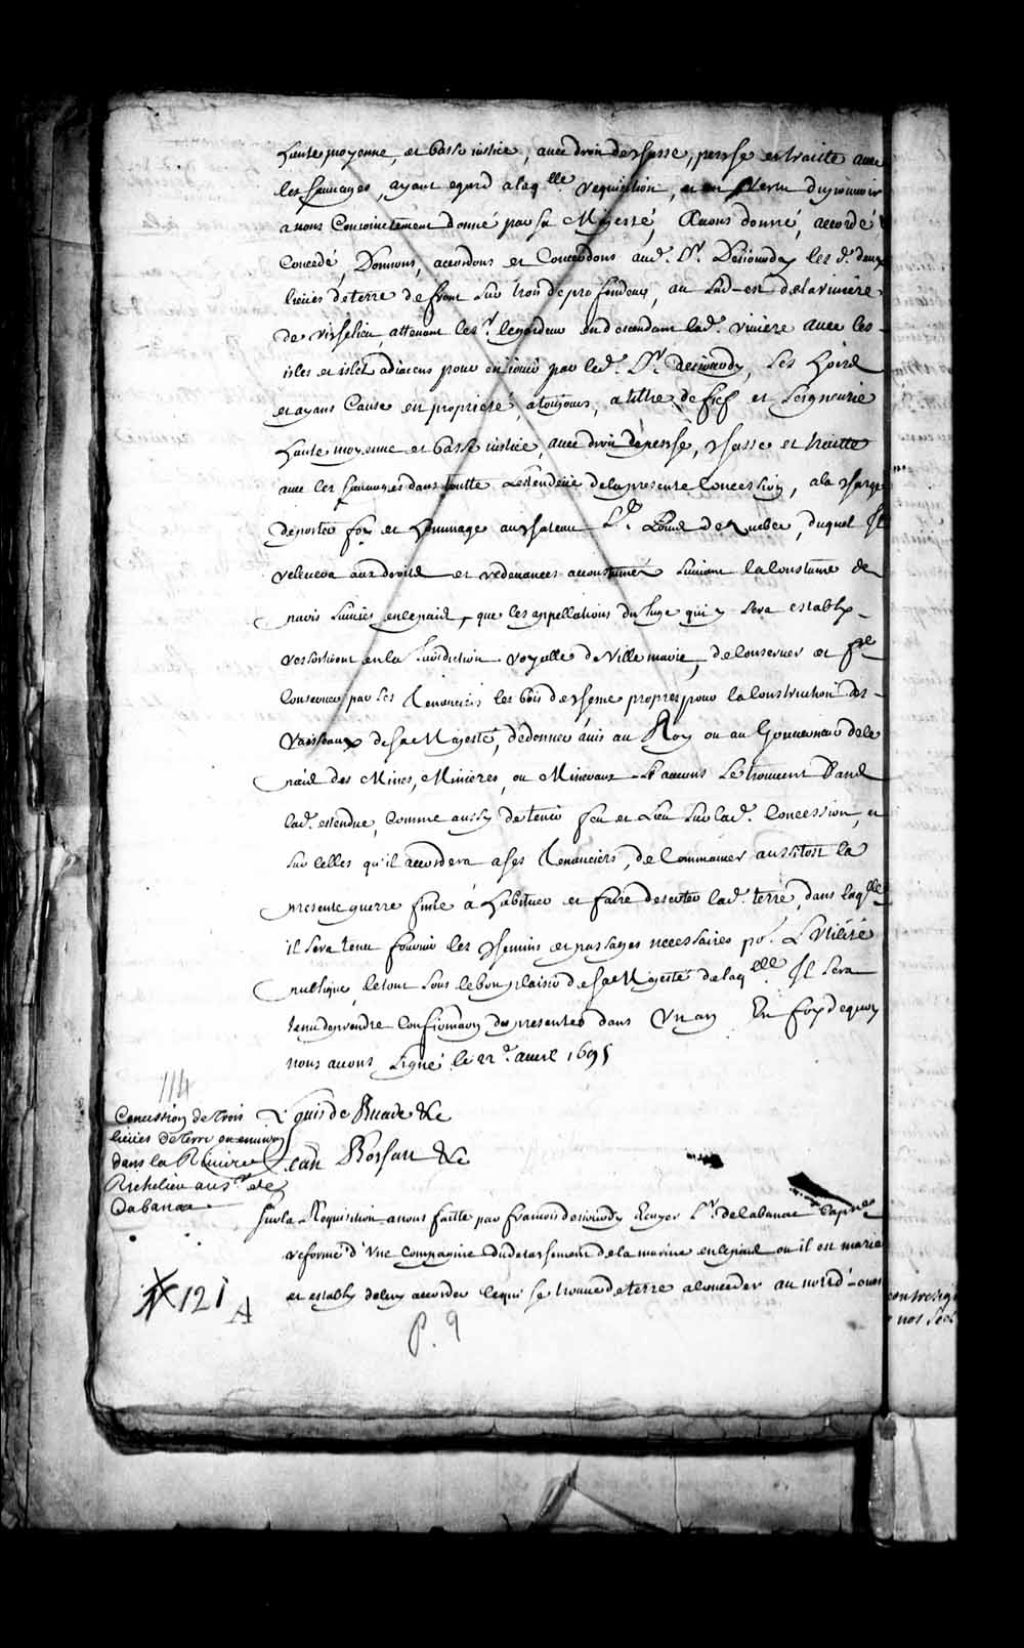 haute moyenne, et basse iustice, auec droit de chasse, pesche et traitte auec
les sauuages, ayant egard a laq.lle requisition, et en vertu du pouuoir
a nous Conioinctement donné par sa Majesté, Auons donné, accordé
Concedé, Donnons, accordons et Concedons aud. Sr. Desiourdy les d. deux
lieües de terre de front sur trois de profondeur, au sud-est de la riuiere
de richelieu, attenant le sr. legardeur en descendant lad. riuiere auec les
isles et islets adiacens pour en iouir par led. Sr. desiourdy, ses hoirs
et ayans Cause en proprieté, a tousjours, a tiltre de fief et seigneurie
haute moyenne et basse iustice, auec droit de pesche, chasse et traitte
auec les sauuages dans toutte L'estendüe de la presente Concession, a la charge
de porter foy et hommage au chateau St. Louis de Quebec, duquel Il
releuera aux droits et redeuances accoustumez suiuant la Coustume de
paris suiuie en ce païs, que les appellations du Juge qui y sera estably
ressortiront en la Jurisdiction royalle de Ville marie, de Conseruer et fre
Conseruer par ses Tenanciers les bois de chesne propres pour la Construction des
Vaisseaux de sa Majesté, de donner auis au Roy ou au Gouuerneur de ce
païs des Mines, Minieres, ou Mineraux si aucuns se trouuent dans
lad. estendue, Comme aussy de tenir feu et Lieu sur lad. Concession, et
sur celles qu'il accordera a ses Tenanciers, de Commancer aussitost la
presente guerre finie a habituer et faire deserter lad. terre, dans laqlle
il sera tenu fournir les chemins et passages necessaires pr. L'vtilité
publique, le tout sous le bon plaisir de sa Majesté de laq.elle Il sera
tenu de prendre Confirmaon des presentes dans Vn an En foy de quoy
nous auons signé le 22e. auril 1695
114
Concession de trois
lieües de terre en
dans la Riuiere
Richelieu au sr. de
Cabanac
Louis de Buade &c
Jean Bochart &c
Sur la Requisition a nous faitte par francois desiourdy Ecuyer Sr. de Cabanac Capne
reformé d'Vne Compagnie du detachement de la marine en ce païs ou il est marié
et estably de luy accorder ce qui se trouue de terre a conceder au nord-ouest
121 A
P. 9
contresig
nos Secr